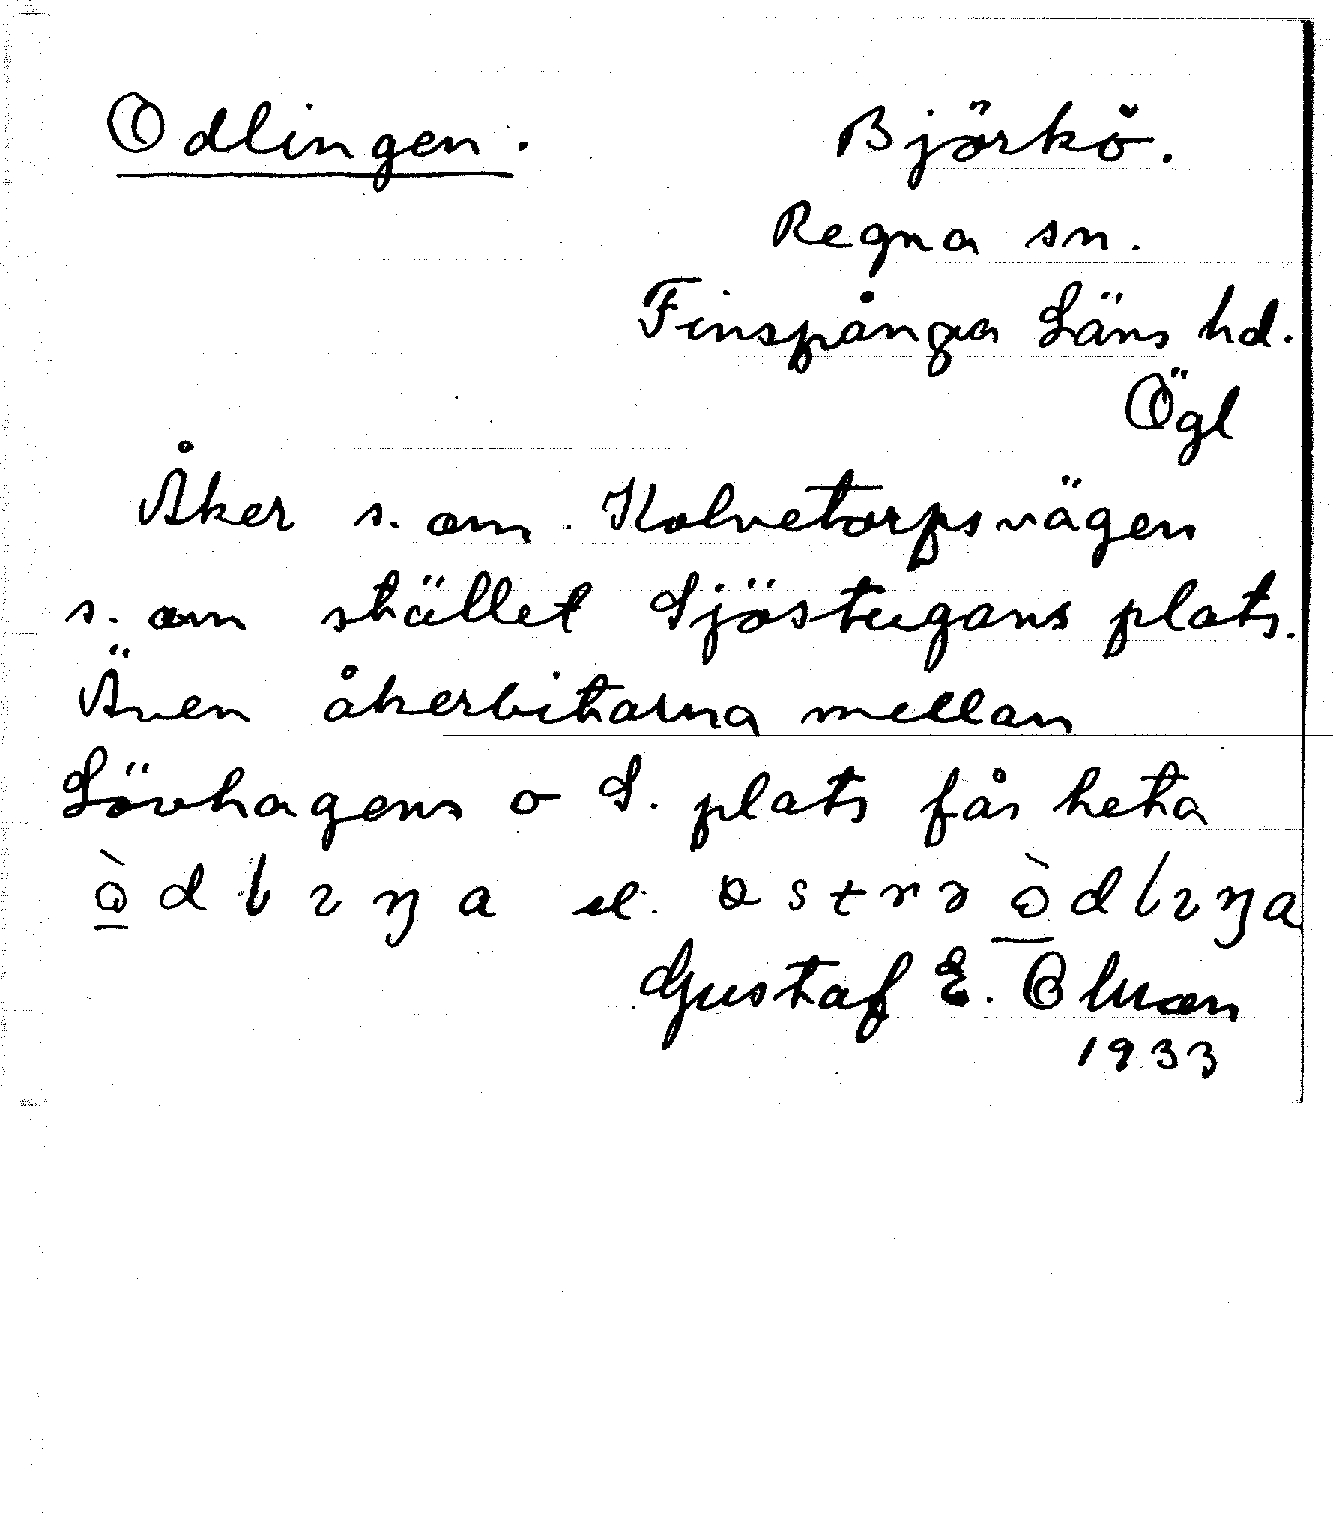 Odlingen. Björkö.
Regna sn.
Finspånga Läns hd.
Ögl
Åker s. om Kolvetorpsvägen
s. om stället Sjöstugans plats.
Även åkerbitarna mellan
Lövhagens o S. plats får heta
ò̱dlɩŋa el. ɵstrə ò̱dlɩŋa
Gustaf E.
1933